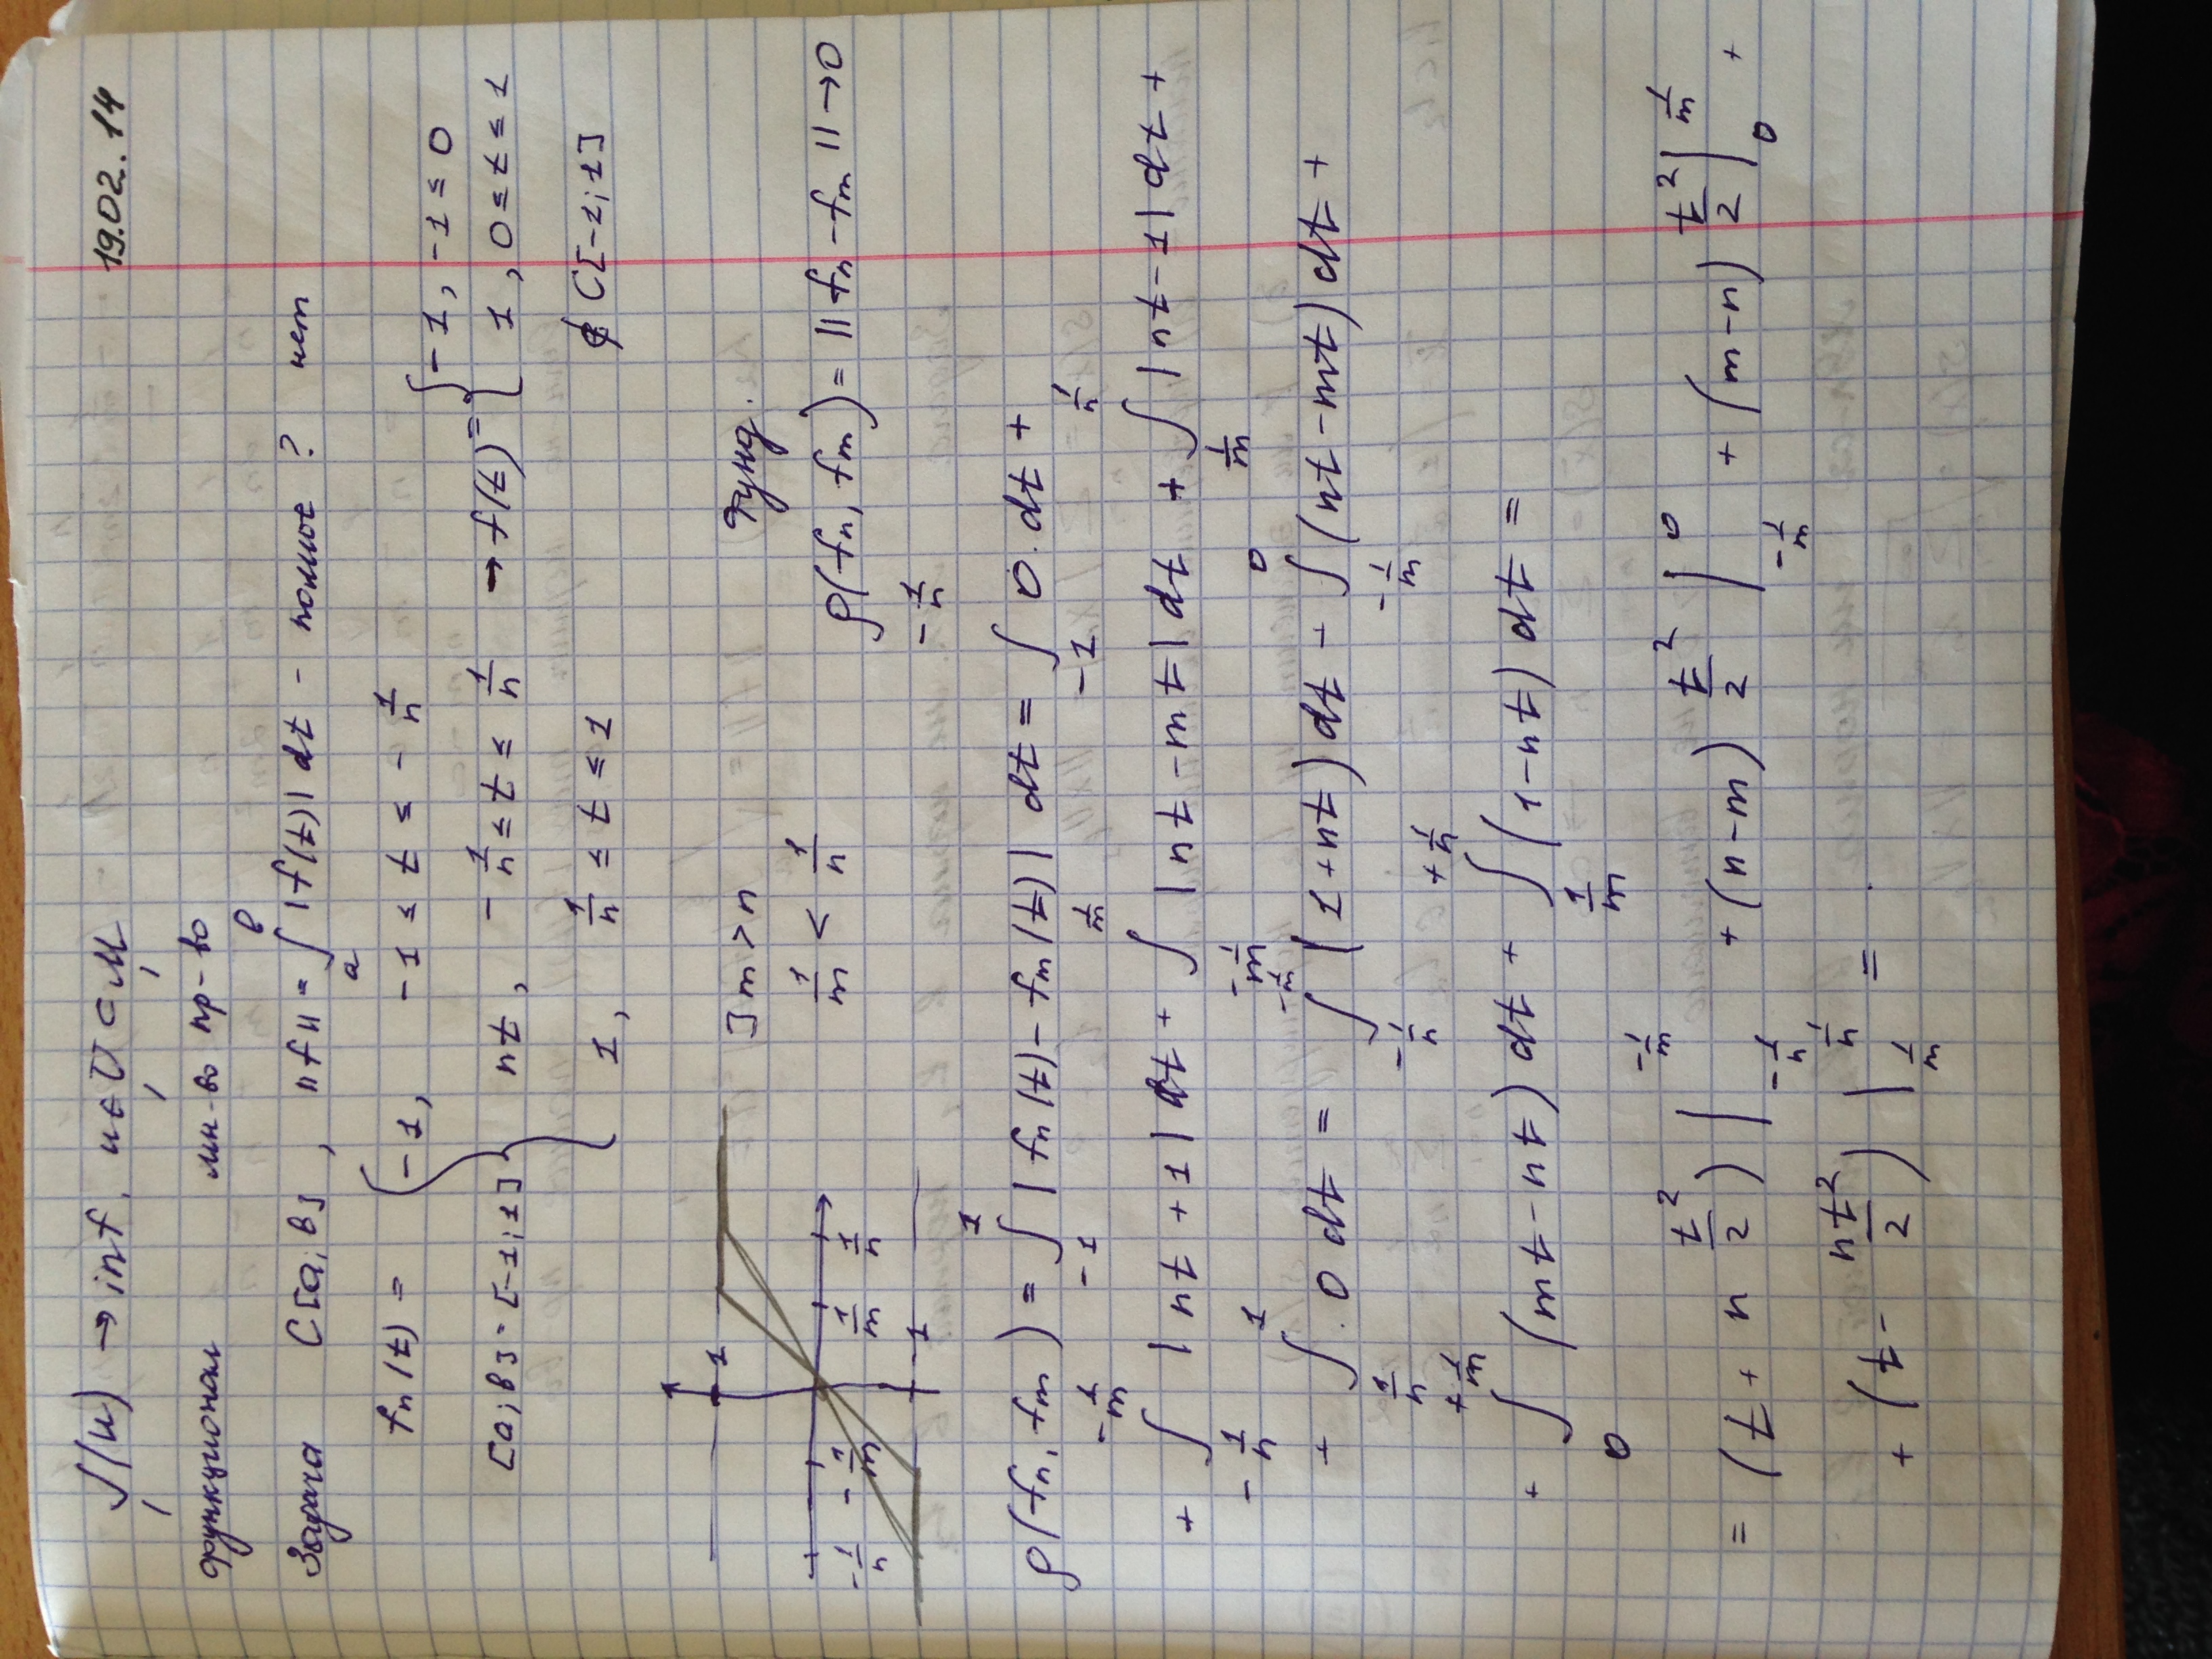 19.02.14
J(u) → inf, u ∈ U ⊂ M
функционал лин-во пр-во
Задача C[a,b], ||f|| = ∫_a^b |f(t)| dt - полное? нет
f_n(t) = { -1, -1 ≤ t ≤ -1/n → f(t) = { -1, -1 ≤ 0
[a;b] = [-1;1] nt, -1/n ≤ t ≤ 1/n 1, 0 ≤ t ≤ 1
1, 1/n ≤ t ≤ 1 ∉ C[-1;1]
1 ] m > n фунд.
-1/n -1/m 1/m 1/n 1/m < 1/n ρ(f_n, f_m) = ||f_n - f_m|| → 0
-1
ρ(f_n, f_m) = ∫_{-1}^{1} |f_n(t) - f_m(t)| dt = ∫_{-1}^{-1/n} 0·dt +
+ ∫_{-1/n}^{-1/m} |nt + 1| dt + ∫_{-1/m}^{1/m} |nt - mt| dt + ∫_{1/m}^{1/n} |nt - 1| dt +
+ ∫_{1/n}^{1} 0 dt = ∫_{-1/n}^{-1/m} (1 + nt) dt + ∫_{-1/m}^{0} (nt - mt) dt +
+ ∫_0^{+1/m} (mt - nt) dt + ∫_{1/m}^{+1/n} (1 - nt) dt =
= (t + n t²/2) |_{-1/n}^{-1/m} + (n - m) t²/2 |_{-1/m}^{0} + (m - n) t²/2 |_0^{1/m} +
+ (t - nt²/2) |_{1/m}^{1/n} =